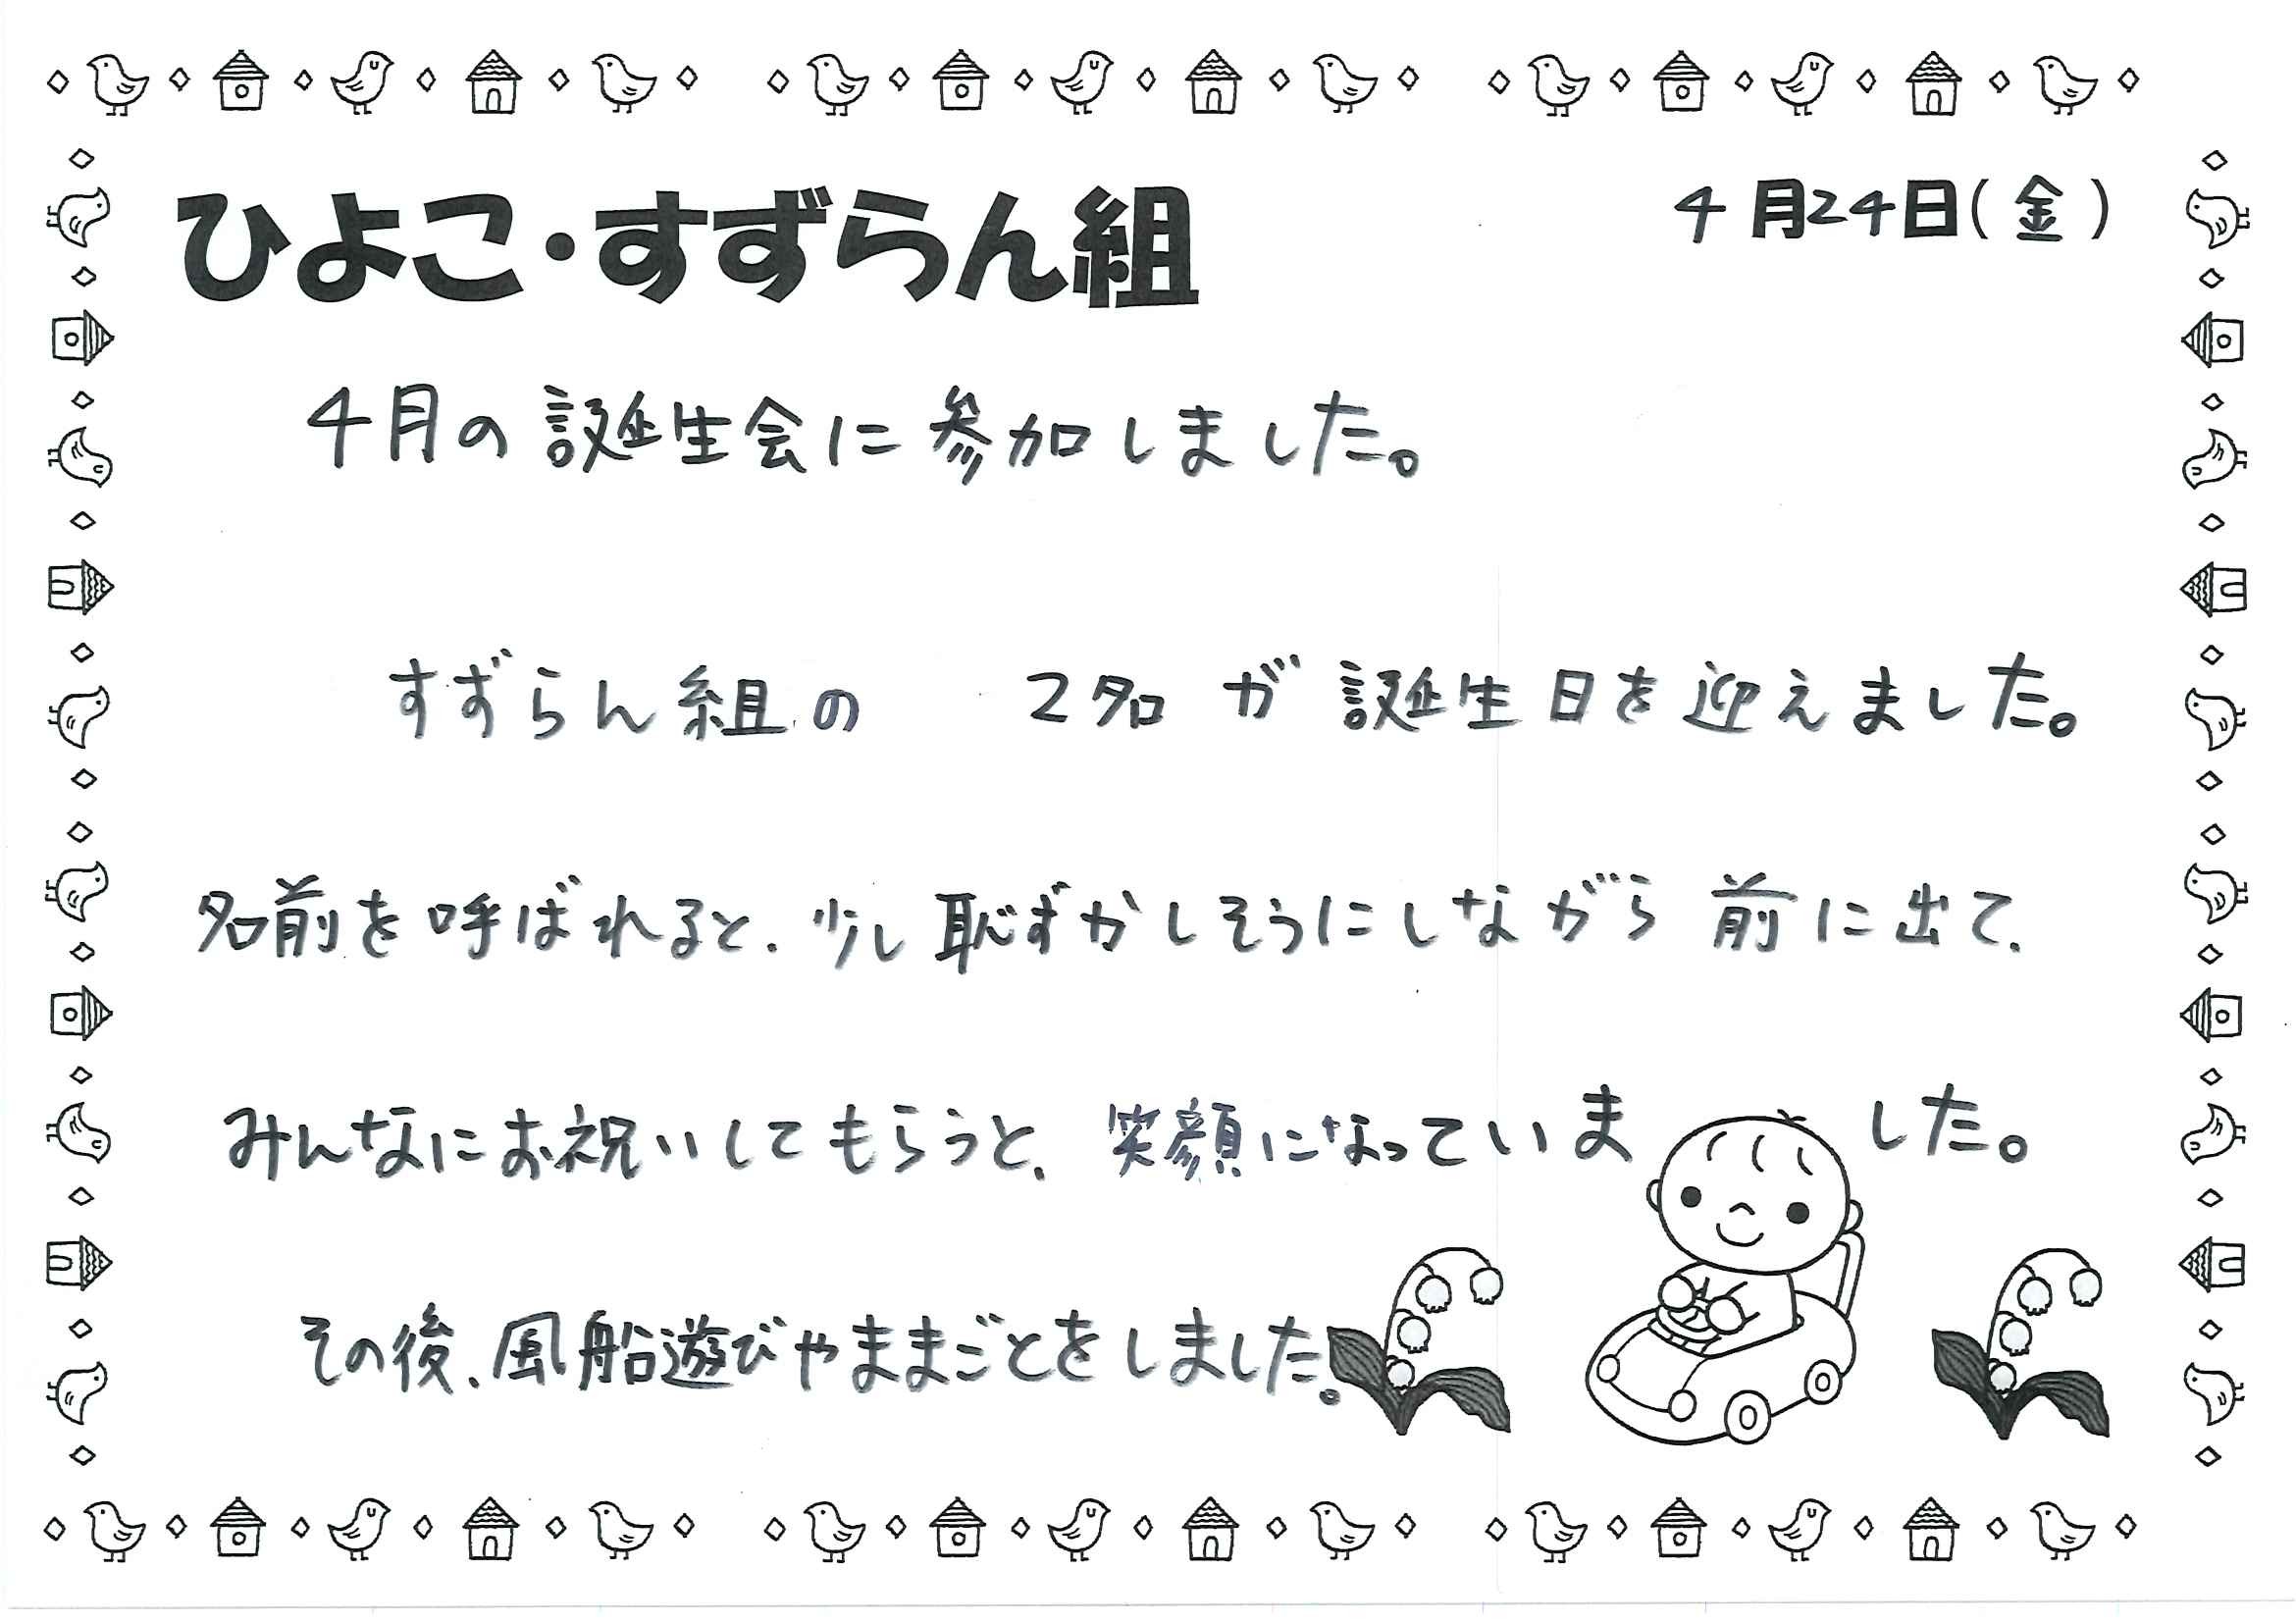 ひよこ・すずらん組
4月24日(金)
4月の誕生会に参加しました。
すずらん組の 2名 が誕生日を迎えました。
名前を呼ばれると、少し恥ずかしそうにしながら前に出て、
みんなにお祝いしてもらうと、笑顔になっていました。
その後、風船遊びやままごとをしました。